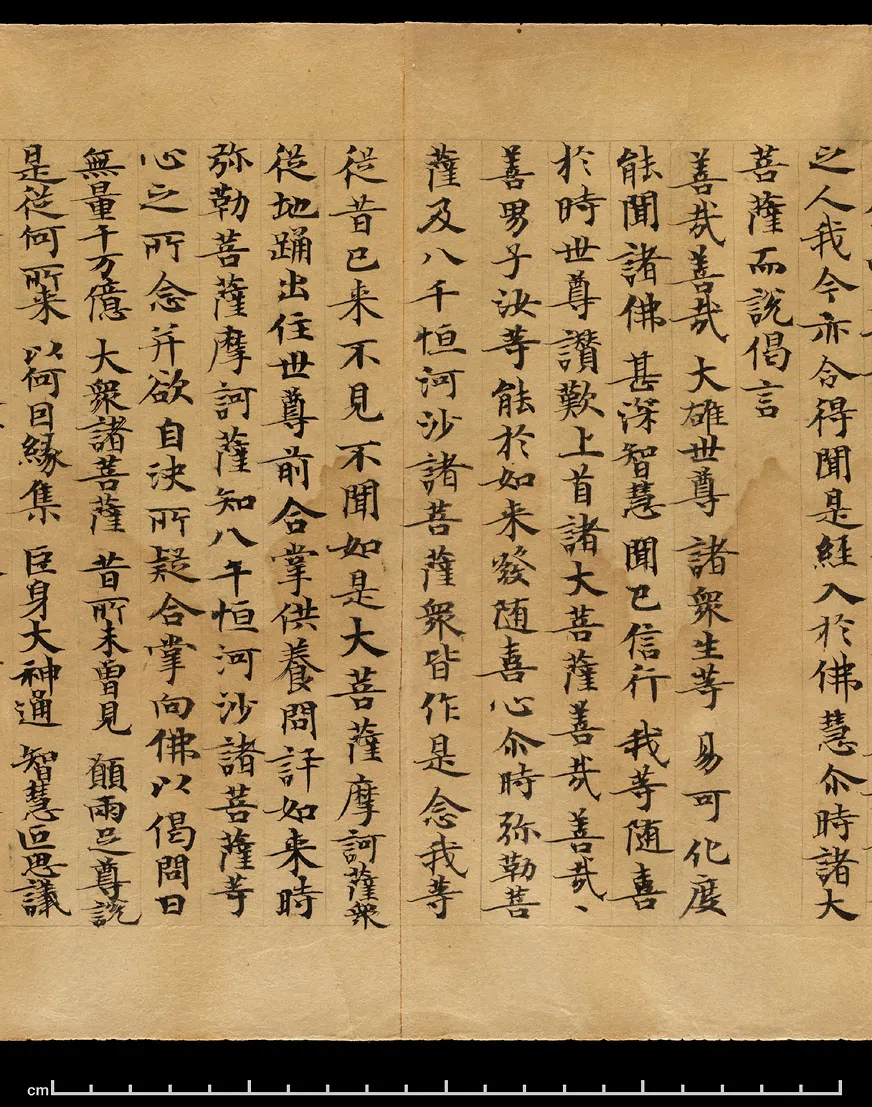 之人我今亦令得聞是經入於佛慧尒時諸大
菩薩而說偈言
善哉善哉 大雄世尊 諸衆生等 易可化度
能聞諸佛 甚深智慧 聞已信行 我等随喜
於時世尊讃歎上首諸大菩薩善哉善哉、
善男子汝等能於如来發随喜心尒時弥勒菩
薩及八千恒河沙諸菩薩衆皆作是念我等
從昔已来不見不聞如是大菩薩摩訶薩衆
從地踊出住世尊前合掌供養問訊如来時
弥勒菩薩摩訶薩知八千恒河沙諸菩薩等
心之所念并欲自決所疑合掌向佛以偈問曰
無量千万億 大衆諸菩薩 昔所未曽見 願兩足尊說
是從何所来 以何因緣集 巨身大神通 智慧叵思議